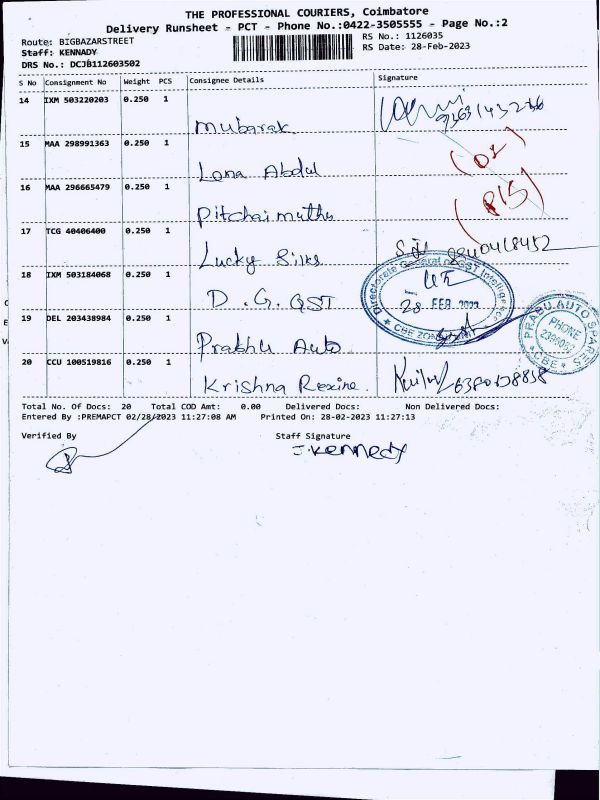 THE PROFESSIONAL COURIERS, Coimbatore
Delivery Runsheet - PCT - Phone No.:0422-3505555 - Page No.:2
Route: BIGBAZARSTREET
RS No.: 1126035
Staff: KENNADY
RS Date: 28-Feb-2023
DRS No.: DCJB112603502
S No Consignment No Weight PCS Consignee Details Signature
14 IXM 503220203 0.250 1
Mubarak
15 MAA 298991363 0.250 1
Lana Abdul
(DL)
16 MAA 296665479 0.250 1
Pitchaimuthu
(P15)
17 TCG 40406400 0.250 1
Lucky Silks
18 IXM 503184068 0.250 1
D.G. GST
Directorate General of GST Intelligence
28 FEB 2023
CBE ZONAL UNIT
19 DEL 203438984 0.250 1
Prabhu Auto
PRABU AUTO SPARES
PHONE
CBE
20 CCU 100519816 0.250 1
Krishna Rexine.
Total No. Of Docs: 20 Total COD Amt: 0.00 Delivered Docs: Non Delivered Docs:
Entered By :PREMAPCT 02/28/2023 11:27:08 AM Printed On: 28-02-2023 11:27:13
Verified By Staff Signature
J.Kennedy